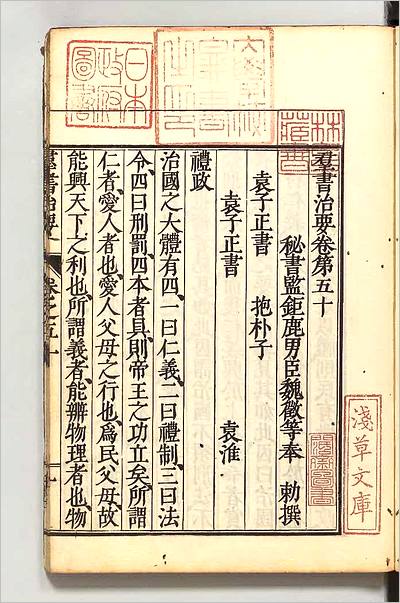 羣書治要卷第五十
秘書監鉅鹿男臣魏徵等奉 勅撰
袁子正書 抱朴子
袁子正書 袁淮
禮政
治國之大體有四、一曰仁義、二曰禮制、三曰法
令、四曰刑罰、四本者具、則帝王之功立矣、所謂
仁者、愛人者也、愛人父母之行也、爲民父母、故
能興天下之利也、所謂義者、能辨物理者也、物
羣書治要 卷之五十 一
日本
政府
圖書
淺草文庫